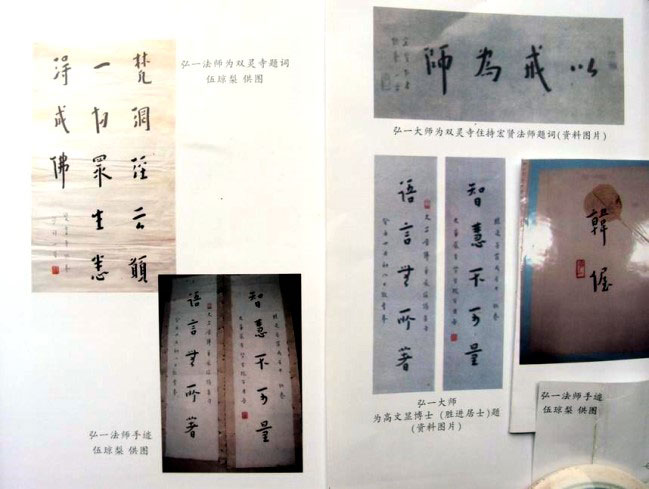 梵網經云願
一切眾生悉
得成佛
弘一法师为双灵寺题词
伍琼梨 供图
智慧不可量
語言無所著
弘一法师手迹
伍琼梨 供图
以戒為師
弘一大师为双灵寺住持宏贤法师题词(资料图片)
智慧不可量
語言無所著
弘一大师
为高文显博士 (胜进居士)题
(资料图片)
韓偓
弘一法师手迹
伍琼梨 供图